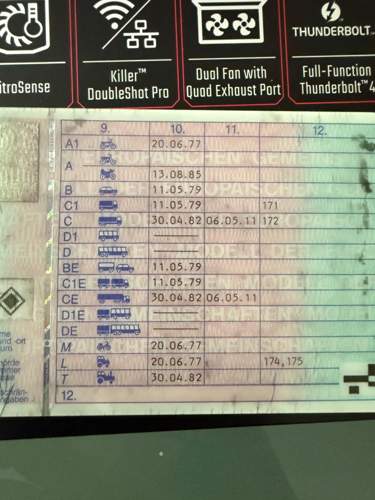 itroSense
Killer™
DoubleShot Pro
Dual Fan with
Quad Exhaust Port
THUNDERBOLT™
Full-Function
Thunderbolt™ 4
9. 10. 11. 12.
A1 20.06.77
A
13.08.85
B 11.05.79
C1 11.05.79 171
C 30.04.82 06.05.11 172
D1
D
BE 11.05.79
C1E 11.05.79
CE 30.04.82 06.05.11
D1E
DE
M 20.06.77
L 20.06.77 174,175
T 30.04.82
12.